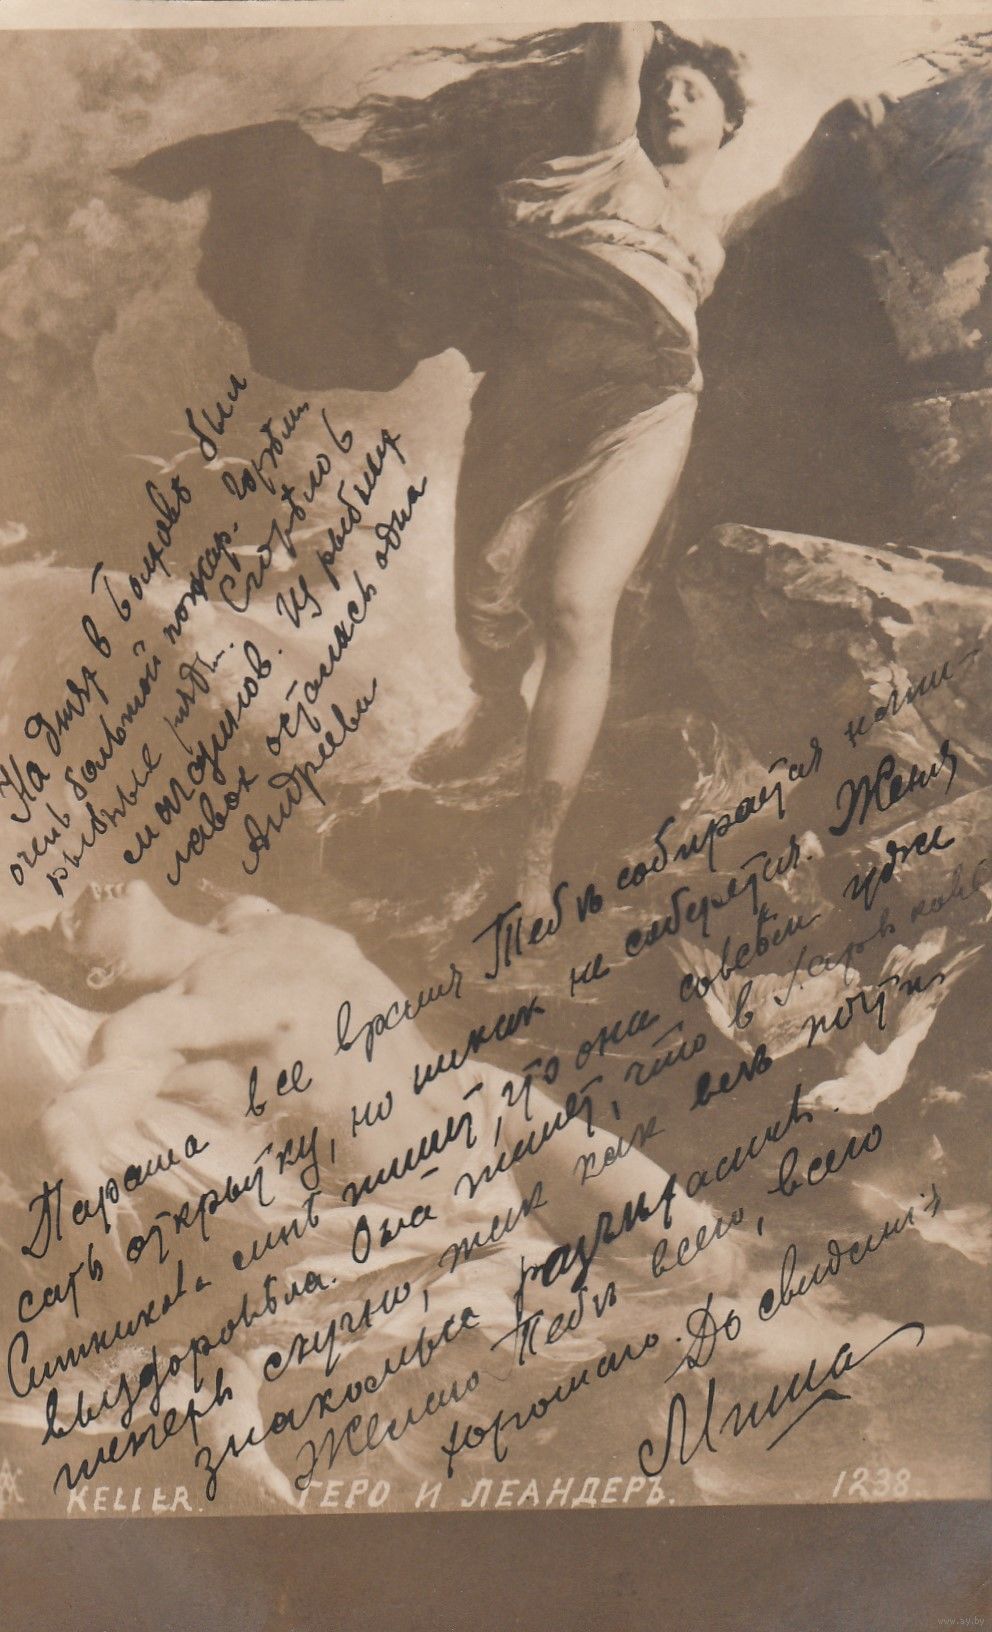 На дняхъ в Болховѣ был
очень большой пожар. Горѣли
рыбные ряды. Сгорѣло 6
магазинов. Из рыбных
лавок осталась одна
Андреева
Параша все время Тебѣ собирается напи-
сать открытку, но никак не соберется. Женя
Ситникова мнѣ пишет, что она совсѣм уже
выздоровѣла. Она пишет, что в Харькове
теперь скучно, так как всѣ почти
знакомые разъѣхались.
Желаю Тебѣ всего, всего
хорошаго. До свиданія
Миша
KELLER. ГЕРО И ЛЕАНДЕРЪ. 1238.
www.ay.by